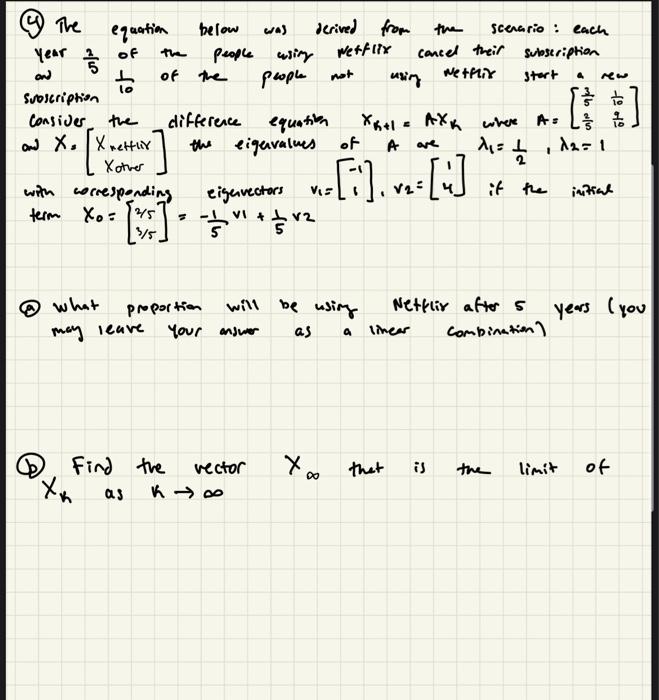 ④ The equation below was derived from the scenario: each
year 2/5 of the people using Netflix cancel their subscription
and 1/10 of the people not using Netflix start a new
subscription
Consider the difference equation X_{k+1} = AX_k where A = [3/5 1/10; 2/5 9/10]
and X = [X netflix; X other] the eigenvalues of A are λ₁ = 1/2, λ₂ = 1
with corresponding eigenvectors v₁ = [-1; 1], v₂ = [1; 4] if the initial
term X₀ = [2/5; 3/5] = -1/5 v1 + 1/5 v2
ⓐ What proportion will be using Netflix after 5 years (you
may leave your answer as a linear combination)
ⓑ Find the vector X∞ that is the limit of
X_k as k → ∞